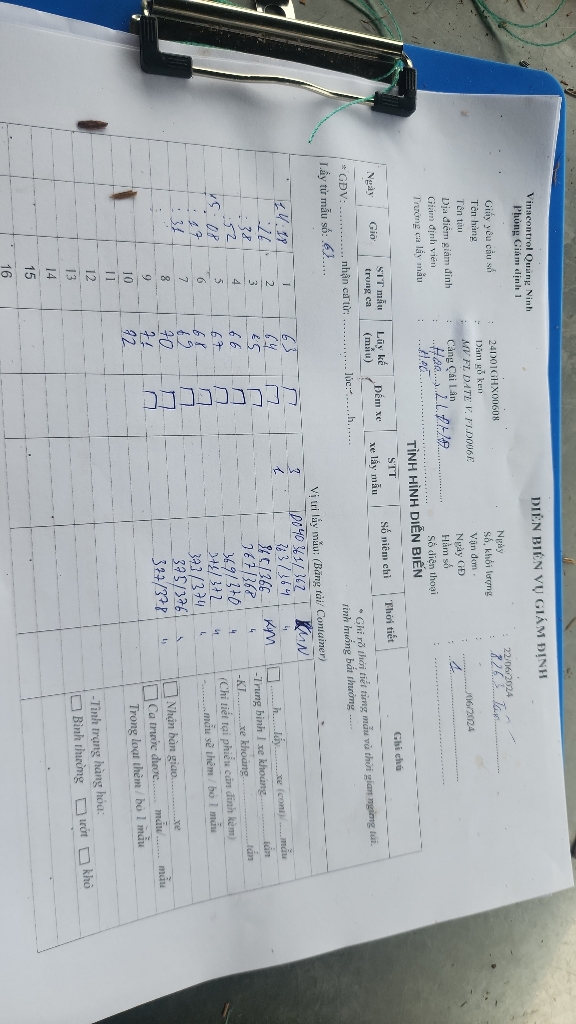 Vinacontrol Quảng Ninh
Phòng Giám định 1
DIỄN BIẾN VỤ GIÁM ĐỊNH
Giấy yêu cầu số : 24D01GHX00608
Ngày : 22/06/2024
Tên hàng : Dăm gỗ keo
Số, khối lượng :
Tên tàu : MV FLDATE V. FLD006E
Vận đơn :
Địa điểm giám định : Cảng Cái Lân
Ngày GĐ : /06/2024
Giám định viên
Hầm số : 1
Trưởng ca lấy mẫu
Số điện thoại :
TÌNH HÌNH DIỄN BIẾN
Ngày Giờ STT mẫu trong ca Lũy kế (mẫu) Đếm xe STT xe lấy mẫu Số niêm chì Thời tiết Ghi chú
* GĐV: nhận ca từ: lúc h
* Ghi rõ thời tiết từng mẫu và thời gian ngừng tải, tình huống bất thường
Lấy từ mẫu số: 63
Vị trí lấy mẫu: (Băng tải/ Container)
1 63 3 361/362
:26 2 64 1 363/364 "
:38 3 65 365/366
:52 4 66 367/368 "
15:08 5 67 369/370 "
6 68 371/372 "
7 69 373/374 "
8 70 375/376
9 71 377/378 "
10 72
11
12
13
14
15
16
h lấy xe (cont)/ mẫu
-Trung bình 1 xe khoảng tấn
-KL xe khoảng tấn
(Chi tiết tại phiếu cân đính kèm)
- mẫu sẽ thêm / bỏ 1 mẫu
Nhận bàn giao xe
Ca trước được mẫu/ mẫu
Trong loạt thêm / bỏ 1 mẫu
-Tình trạng hàng hóa:
Bình thường ướt khô